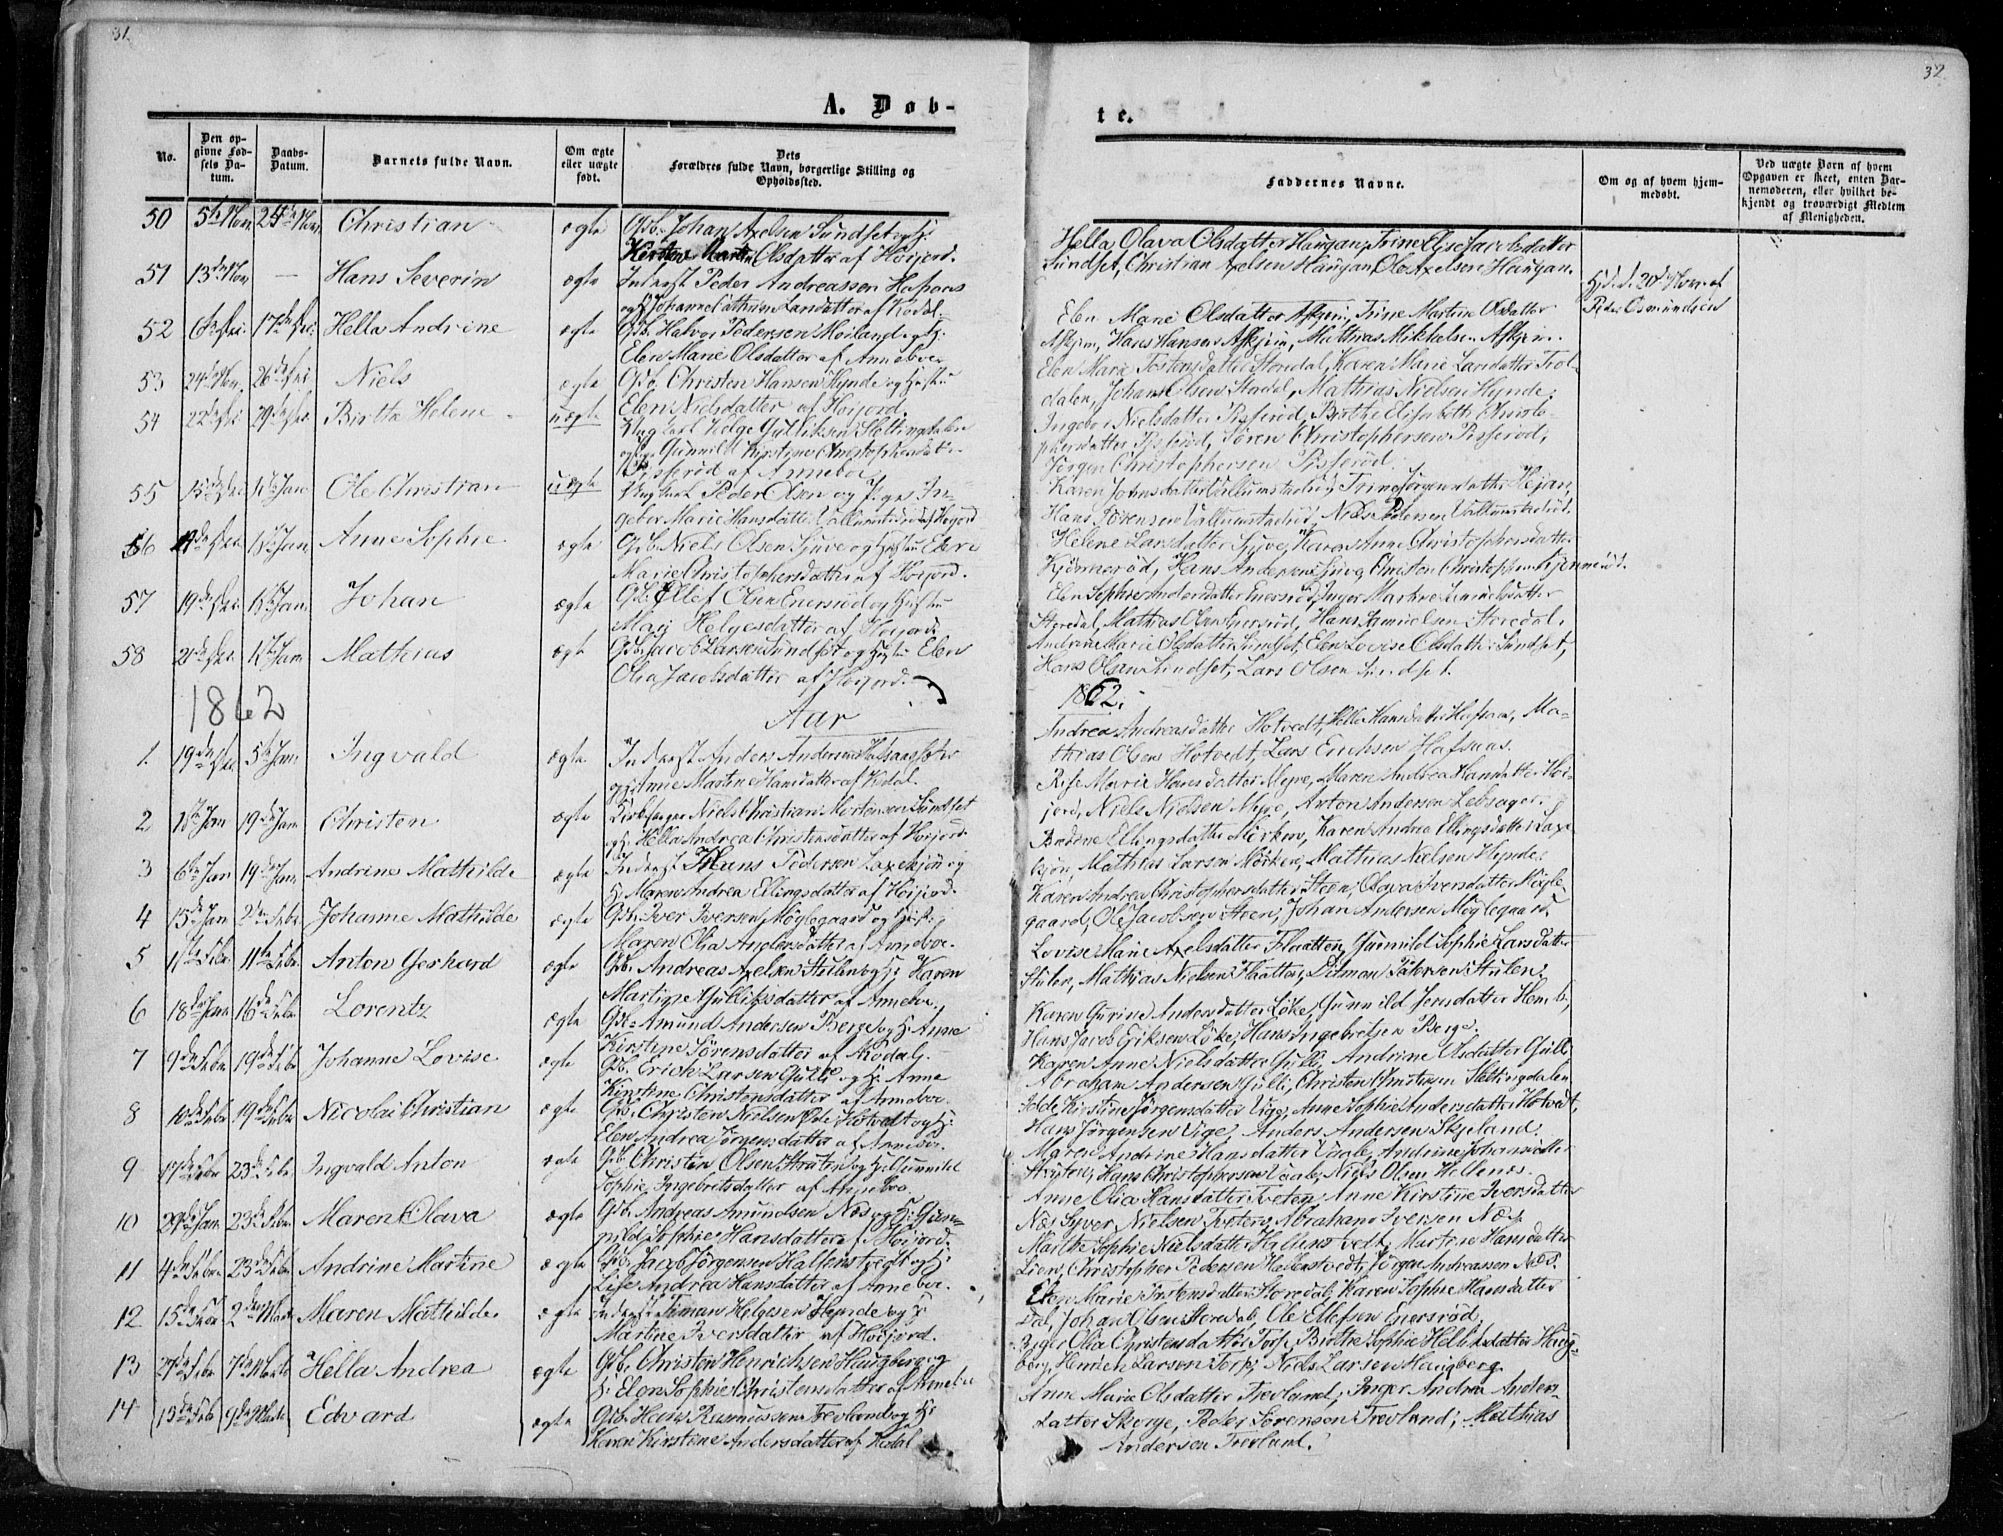 31.
32
A. Døb-
te.
No.
Den opgivne Fødsels Datum.
Daabs-Datum.
Barnets fulde Navn.
Om ægte eller uægte født.
Dets Forældres fulde Navn, borgerlige Stilling og Opholdssted.
Faddernes Navne.
Om og af hvem hjemmedøbt.
Ved uægte Børn af hvem Opgaven er skeet, enten Barnemoderen, eller hvilket bekjendt og troværdigt Medlem af Menigheden.
50 5te Nov. 24de Nov. Christian ægte Gdb. Johan Axelsen Sundset og H:
Olsdatter af Høijord.
Hella Olava Olsdatter Haugan, Trine Elise Jacobsdatter
Sundset, Christian Axelsen Haugan, Ole Axelsen Haugan.
51 13de Nov — Hans Severin ægte Inderst Peder Andreassen Hafsaas
og H. Johanne Cathrine Larsdatter af Kodal.
Elen Marie Olsdatter Askjem, Trine Martine Olsdatter
Askjem, Hans Hansen Askjem, Mathias Mikkelsen Askjem.
Hjd. d. 20de Nov. af
Peder Osmundsen
52 17de Hella Andrine ægte Gdb. Halvor Pedersen Møiland og H:
Elen Marie Olsdatter af Anneboe.
Elen Marie Tostensdatter Storedal, Karen Marie Larsdatter Trol-
dalen, Johan Olsen Stordal, Mathias Nielsen Hynde.
53 24de Nov. 26de Niels ægte Gdb. Christen Hansen Hynde og Hustru
Elen Nielsdatter af Høijord.
Ingebor Nielsdatter Pisserød, Birthe Elisabeth Christo-
phersdatter Pisserød, Søren Christophersen Pisserød,
Jørgen Christophersen Pisserød.
54 22de 29de Birthe Helene uægte Ung Karl Helge Gulliksen Slettingdalen
og Pige Gunnild Kirstine Christophersdatter
Pisserød af Anneboe.
55 Jan Ole Christian uægte Ungkarl Peder Olsen og Pige In-
gebor Marie Hansdatter Vallumstadrød af Høijord
Karen Johnsdatter Vallumstadrød, Trine Jørgensdatter Hejan,
Hans Sørensen Vallumstadrød, Niels Pedersen Vallumstadrød.
56 Jan Anne Sophie ægte Gdb. Niels Olsen Sjuve og Hustru Elen
Marie Christophersdatter af Høijord.
Helene Larsdatter Sjuve, Karen Anne Christophersdatter
Kjønnerød, Hans Andersen Sjuve, Christen Christophersen Kjønnerød.
57 19de Jan. Johan ægte Gdb. Ellef Olsen Enersrød og Hustru
Mari Helgesdatter af Høijord.
Elen Sophie Andersdatter Enersrød, Inger Marthe
Storedal, Mathias Olsen Enersrød, Hans Storedal.
58 21de Jan Mathias ægte Gdb. Jacob Larsen Sundset og Hustru Elen
Olia Jacobsdatter af Høijord.
Andrine Marie Olsdatter Sundset, Elen Lovise Olsdatter Sundset,
Hans Olsen Sundset, Lars Olsen Sundset.
1862
Aar
1862.
1. 19de 5te Jan Ingvald ægte Inderst Anders Andersen Hafsaas
og H. Anne Martine Hansdatter af Kodal.
Andrea Andreasdatter Hotvedt, Hella Hansdatter Hafsaas, Ma-
thias Olsen Hotvedt, Lars Erichsen Hafsaas.
2 Jan 19de Jan Christen ægte Kirkesanger Niels Christian Mortensen Sundset
og H. Hella Andrea Christensdatter af Høijord.
Marie Hansdatter Myre, Maren Andrea Hansdatter Høi-
jord, Niels Nielsen Myre, Anton Andersen Lebsager.
3 6te Jan 19de Jan Andrine Mathilde ægte Inderst Hans Pedersen Laxekjøn og
H. Maren Andrea Ellingsdatter af Høijord.
Ellingsdatter Mørken, Karen Andrea Ellingsdatter Laxe
kjøn, Mathias Larsen Mørken, Mathias Nielsen Hynde.
4 15de Jan 2den Febr Johanne Mathilde ægte Gdb. Iver Iversen Møglegaard og Hustru
Maren Olia Andersdatter af Anneboe.
Karen Andrea Christophersdatter Steen, Olava Iversdatter Møgle
gaard, Ole Jacobsen Steen, Johan Andersen Møglegaard.
5 Anton Gerhard ægte Gdb. Andreas Axelsen Stulen og H: Karen
Martine Gulliksdatter af Anneboe.
Lovise Marie Axelsdatter Flaatten, Gunnild Sophie Larsdatter
Stulen, Mathias Nielsen Flaatten, Pedersen Stulen.
6 18de Jan 16de Febr Lorentz ægte Gdb. Amund Andersen Berge og H. Anne
Kirstine Sørensdatter af Kodal.
Karen Gurine Andersdatter Løke, Gunnild Jensdatter Hem,
Hans Jacob Eriksen Løke, Hans Ingebretsen Berge.
7 9de Febr 19de Febr Johanne Lovise ægte Gdb. Erich Larsen Gulli og H. Anne
Kirstine Christensdatter af Anneboe.
Karen Anne Nielsdatter Gulli, Andrine Olsdatter Gulli
Abraham Andersen Gulli, Christen Christensen Slettingdalen
8 10de Febr 19de Febr Nicolai Christian ægte Gdb. Christen Nielsen Øde Hotvedt og H:
Elen Andrea Jørgensdatter af Anneboe.
Idde Kirstine Jørgensdatter Vige, Anne Sophie Andersdatter Hotvedt,
Hans Jørgensen Vige, Anders Andersen Skjeland.
9 17de Febr 23de Febr Ingvald Anton ægte Gdb. Christen Olsen Struten og H. Gunnild
Sophie Ingebretsdatter af Anneboe.
Maren Andrine Hansdatter Vaale, Andrine Johansdatter
Struten, Hans Christophersen Vaale, Niels Olsen Hellenæs.
10 29de Jan. 23de Febr Maren Olava ægte Gdb. Andreas Amundsen Næs og H. Gun-
nild Sophie Hansdatter af Høijord.
Anne Olia Hansdatter Tveten, Anne Kirstine Iversdatter
Næs, Syver Nielsen Tveten, Abraham Iversen Næs.
11 4de Febr 23de Febr Andrine Martine ægte Gdb. Jacob Jørgensen Hallenstvedt og H:
Lise Andrea Hansdatter af Anneboe.
Marthe Sophie Nielsdatter Hallenstvedt, Martine Hansdatter
Lien, Christopher Pedersen Hallenstvedt, Jørgen Andreassen Næs.
12 15de Febr 2den Marts Maren Mathilde ægte Inderst Timan Helgesen Hynde og H
Martine Iversdatter af Høijord.
Elen Marie Tostensdatter Storedal, Karen Sophie Hansdatter
Dal, Johan Olsen Storedal, Ole Ellefsen Enersrød.
13 27de Febr 7de Marts Hella Andrea ægte Gdb. Christen Henrichsen Haugberg og
H. Elen Sophie Christensdatter af Anneboe
Olia Christensdatter Torp, Birthe Sophie Helliksdatter Haug-
berg, Henrich Larsen Torp, Niels Larsen Haugberg.
14 13de Febr 9de Marts Edvard ægte Gdb. Hans Rasmussen Trevland og H:
Karen Kirstine Andersdatter af Kodal
Anne Marie Olsdatter Trevland, Inger Andrea Anders-
datter Skorge, Peder Sørensen Trevland, Mathias
Andersen Trevland.